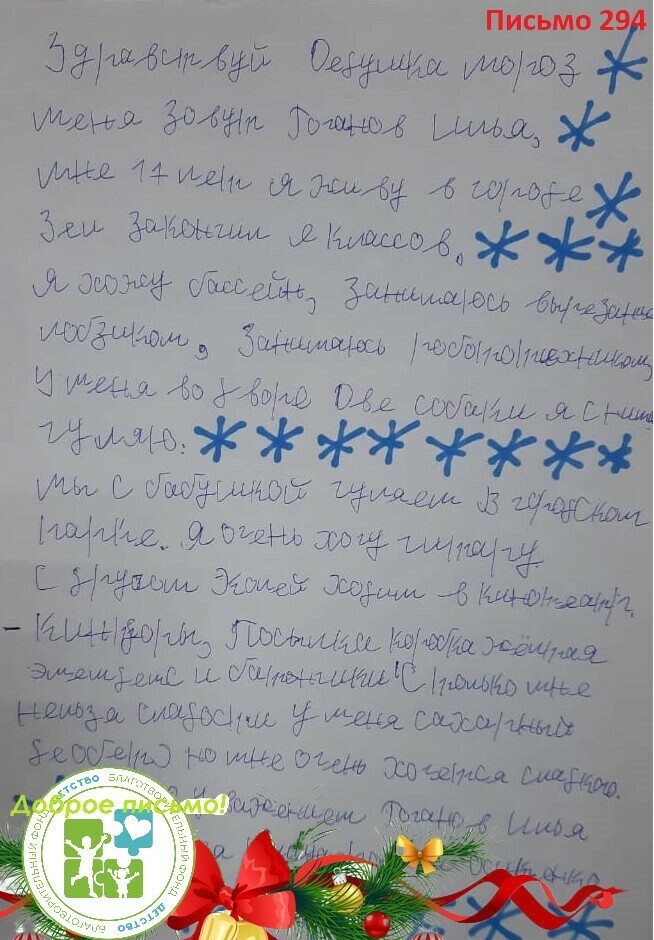 Письмо 294
Здравствуй Дедушка мороз
меня зовут Гоганов Илья,
мне 17 лет я живу в городе
Зеи закончил 9 классов.
я хожу бассейн, занимаюсь
лобзиком, занимаюсь
у меня во дворе две собаки я с ними
гуляю.
мы с бабушкой гуляем в городском
парке. Я очень хочу гитару.
с другом ходим в кинотеатр.
Посылка коробка жёлтая
и батончики только мне
нельзя сладости у меня сахарный
но мне очень хочется сладкого.
уважением Гоганов Илья
Доброе письмо!
БЛАГОТВОРИТЕЛЬНЫЙ ФОНД ДЕТСТВО БЛАГОТВОРИТЕЛЬНЫЙ ФОНД ДЕТСТВО